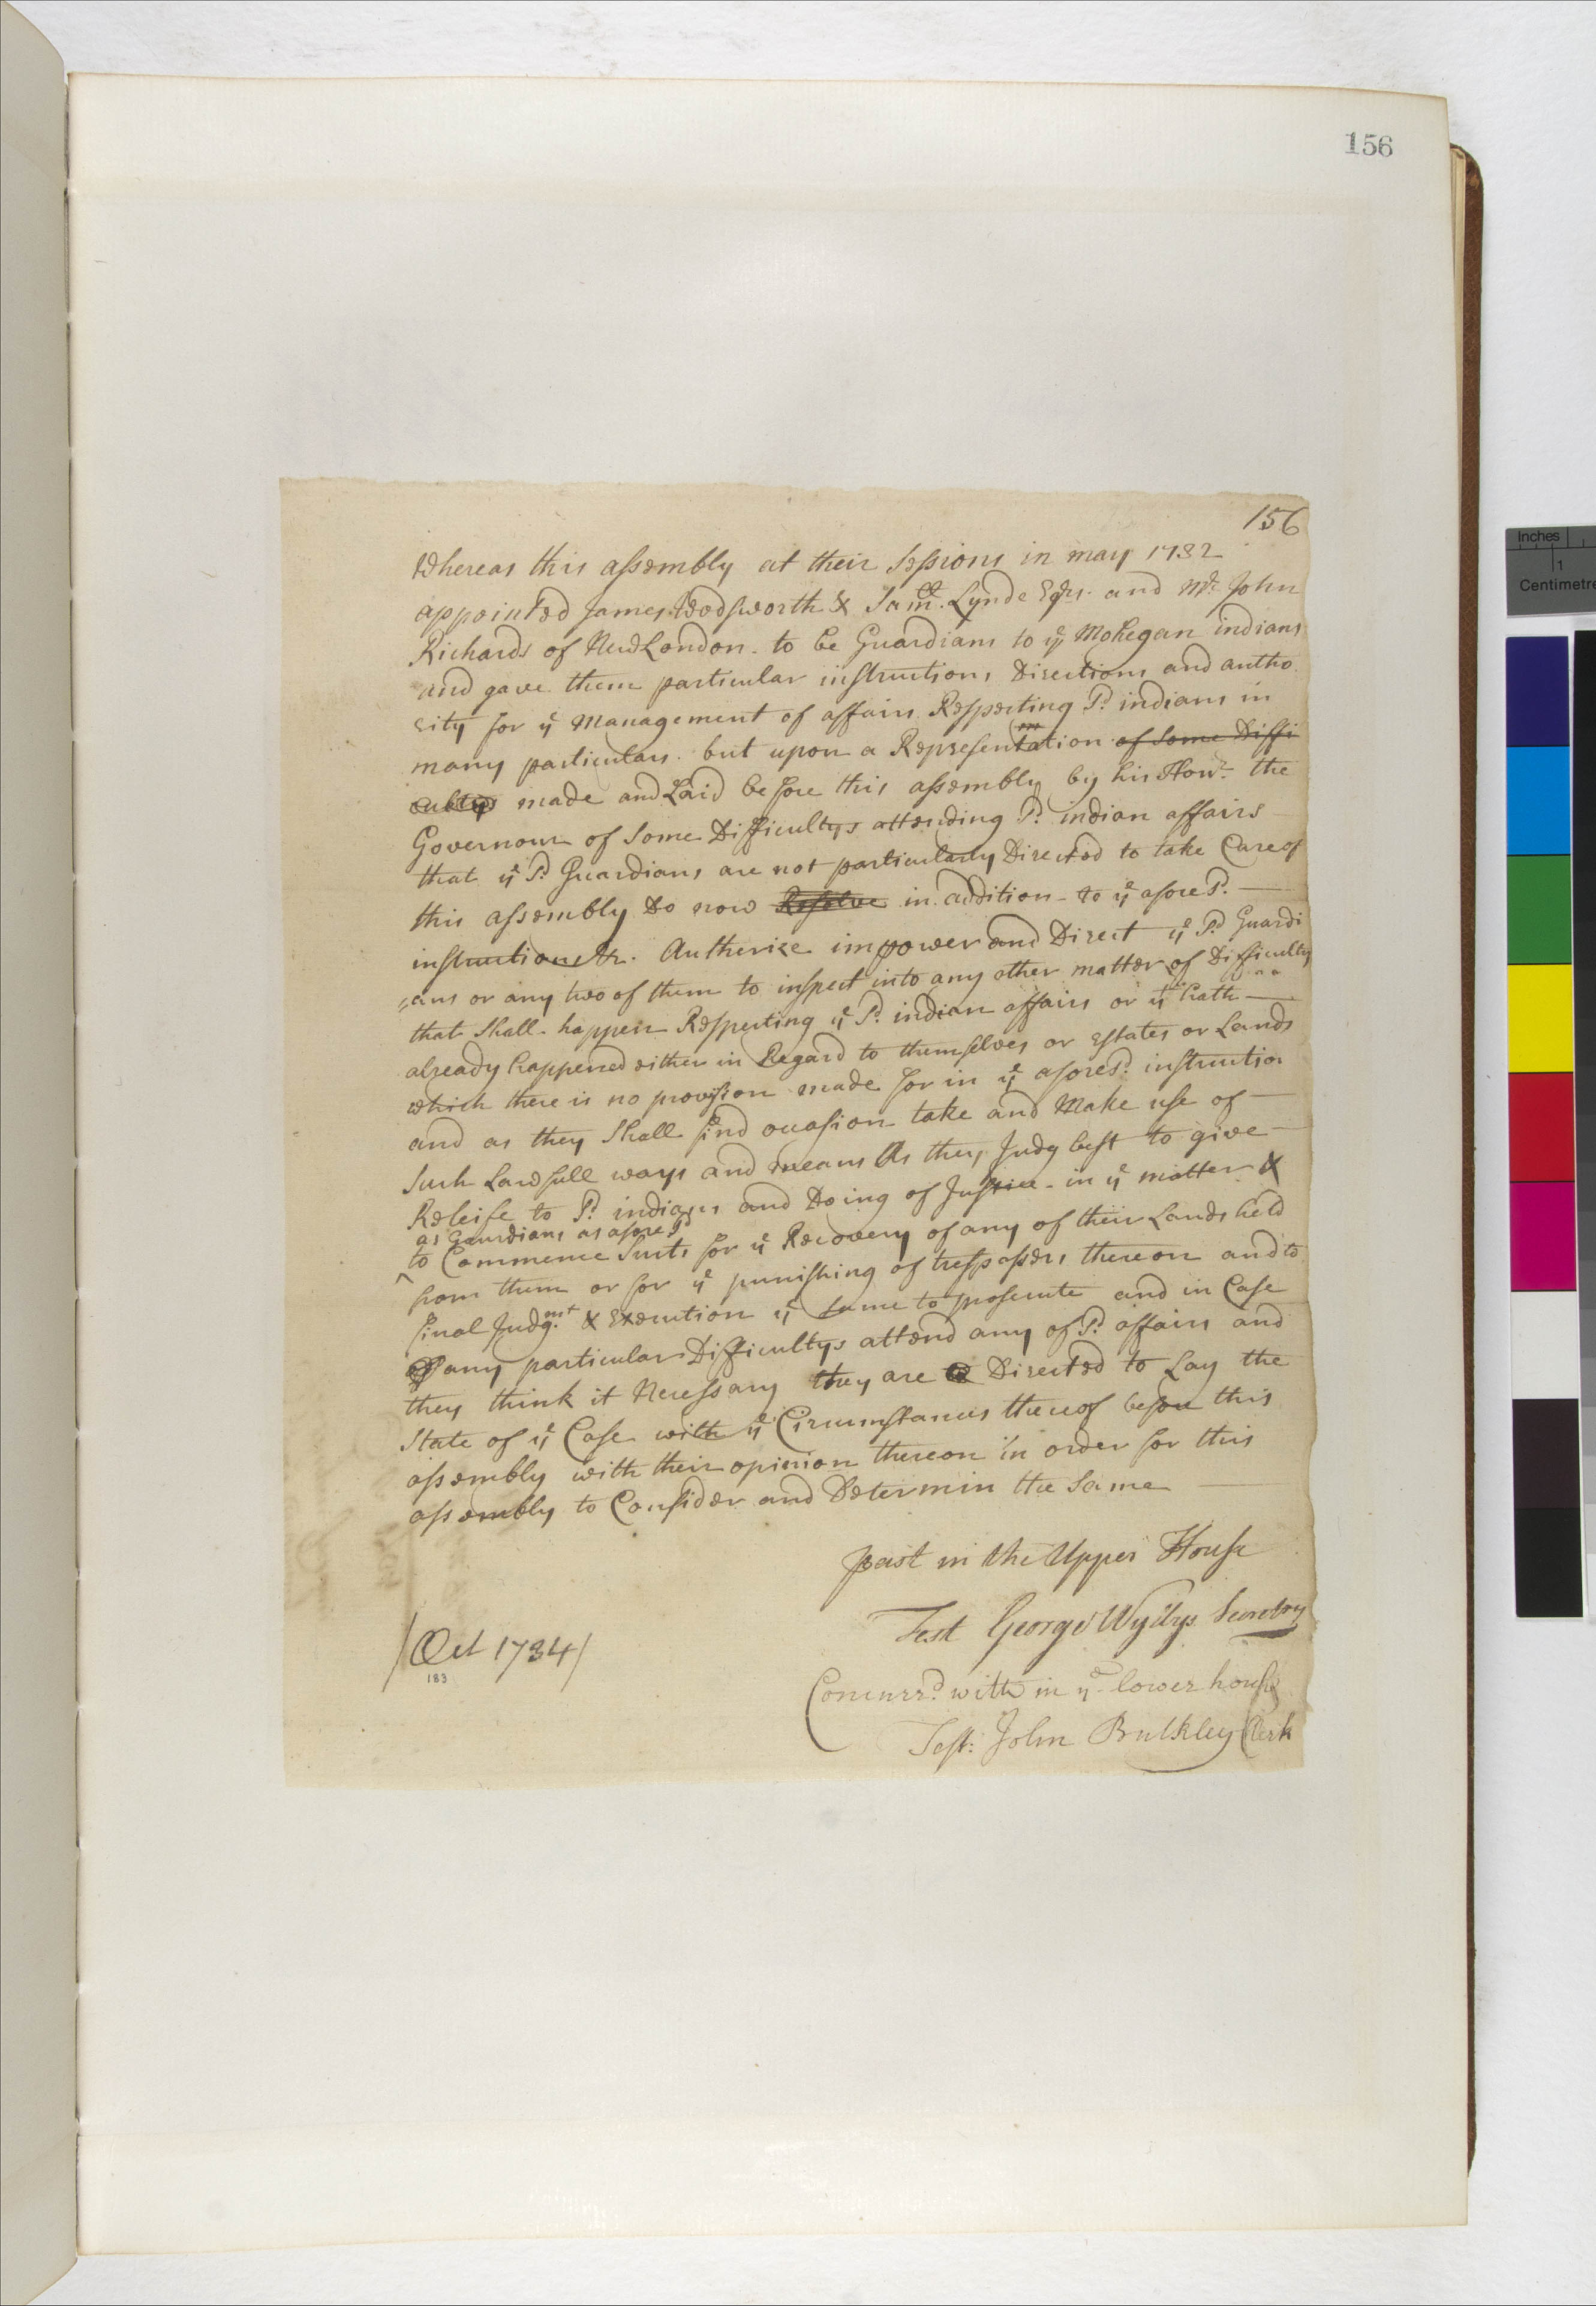 156
156
Whereas this assembly at their Sessions in may 1732
appointed James Wodsworth & Samll. Lynde Esqrs. and Mr. John
Richards of New London - to be Guardians to ye Mohegan indians
and gave them particular instructions Directions and autho
rity for ye Management of affairs Respecting sd. indians in
many particulars. but upon a Representation of some Diffi
cultys made and Laid before this assembly by his Honr. the
Governour of Some Difficultys attending sd. indian affairs
that ye sd. Guardians are not particularly Directed to take Care of
this assembly Do now Resolve in addition - to ye aforesd. —
instructions &c. Autherize impower and Direct ye sd Guardi
„ans or any two of them to inspect into any other matter of Difficulty
that Shall - happen Respecting ye sd. indian affairs or yt hath —
already happened either in Regard to themselves or Estates or Lands
which there is no provision made for in ye aforesd. instruction
and as they Shall find occasion take and Make use of —
Such Lawfull ways and means As they Judg best to give —
Releife to sd. indians and Doing of Justice - in ye matter &
as Gaurdians as aforesd
to Commence Suits for ye Recovery of any of their Lands held
^ from them or for ye punishing of tresspassers thereon and to
final Judgmt. & Execution ye same to prosecute and in Case
of any particular Difficultys attend any of sd. affairs and
they think it Necessary they are Directed to Lay the
State of ye Case with ye Circumstances thereof before this
assembly with their opinion thereon in order for this
assembly to Consider and Determin the Same —
past in the Upper House
Test George Wyllys Secretry
/Oct 1734/
183
Concurrd. with in ye lower house
Test: John Bulkley Clerk
Inches
1
Centimetre